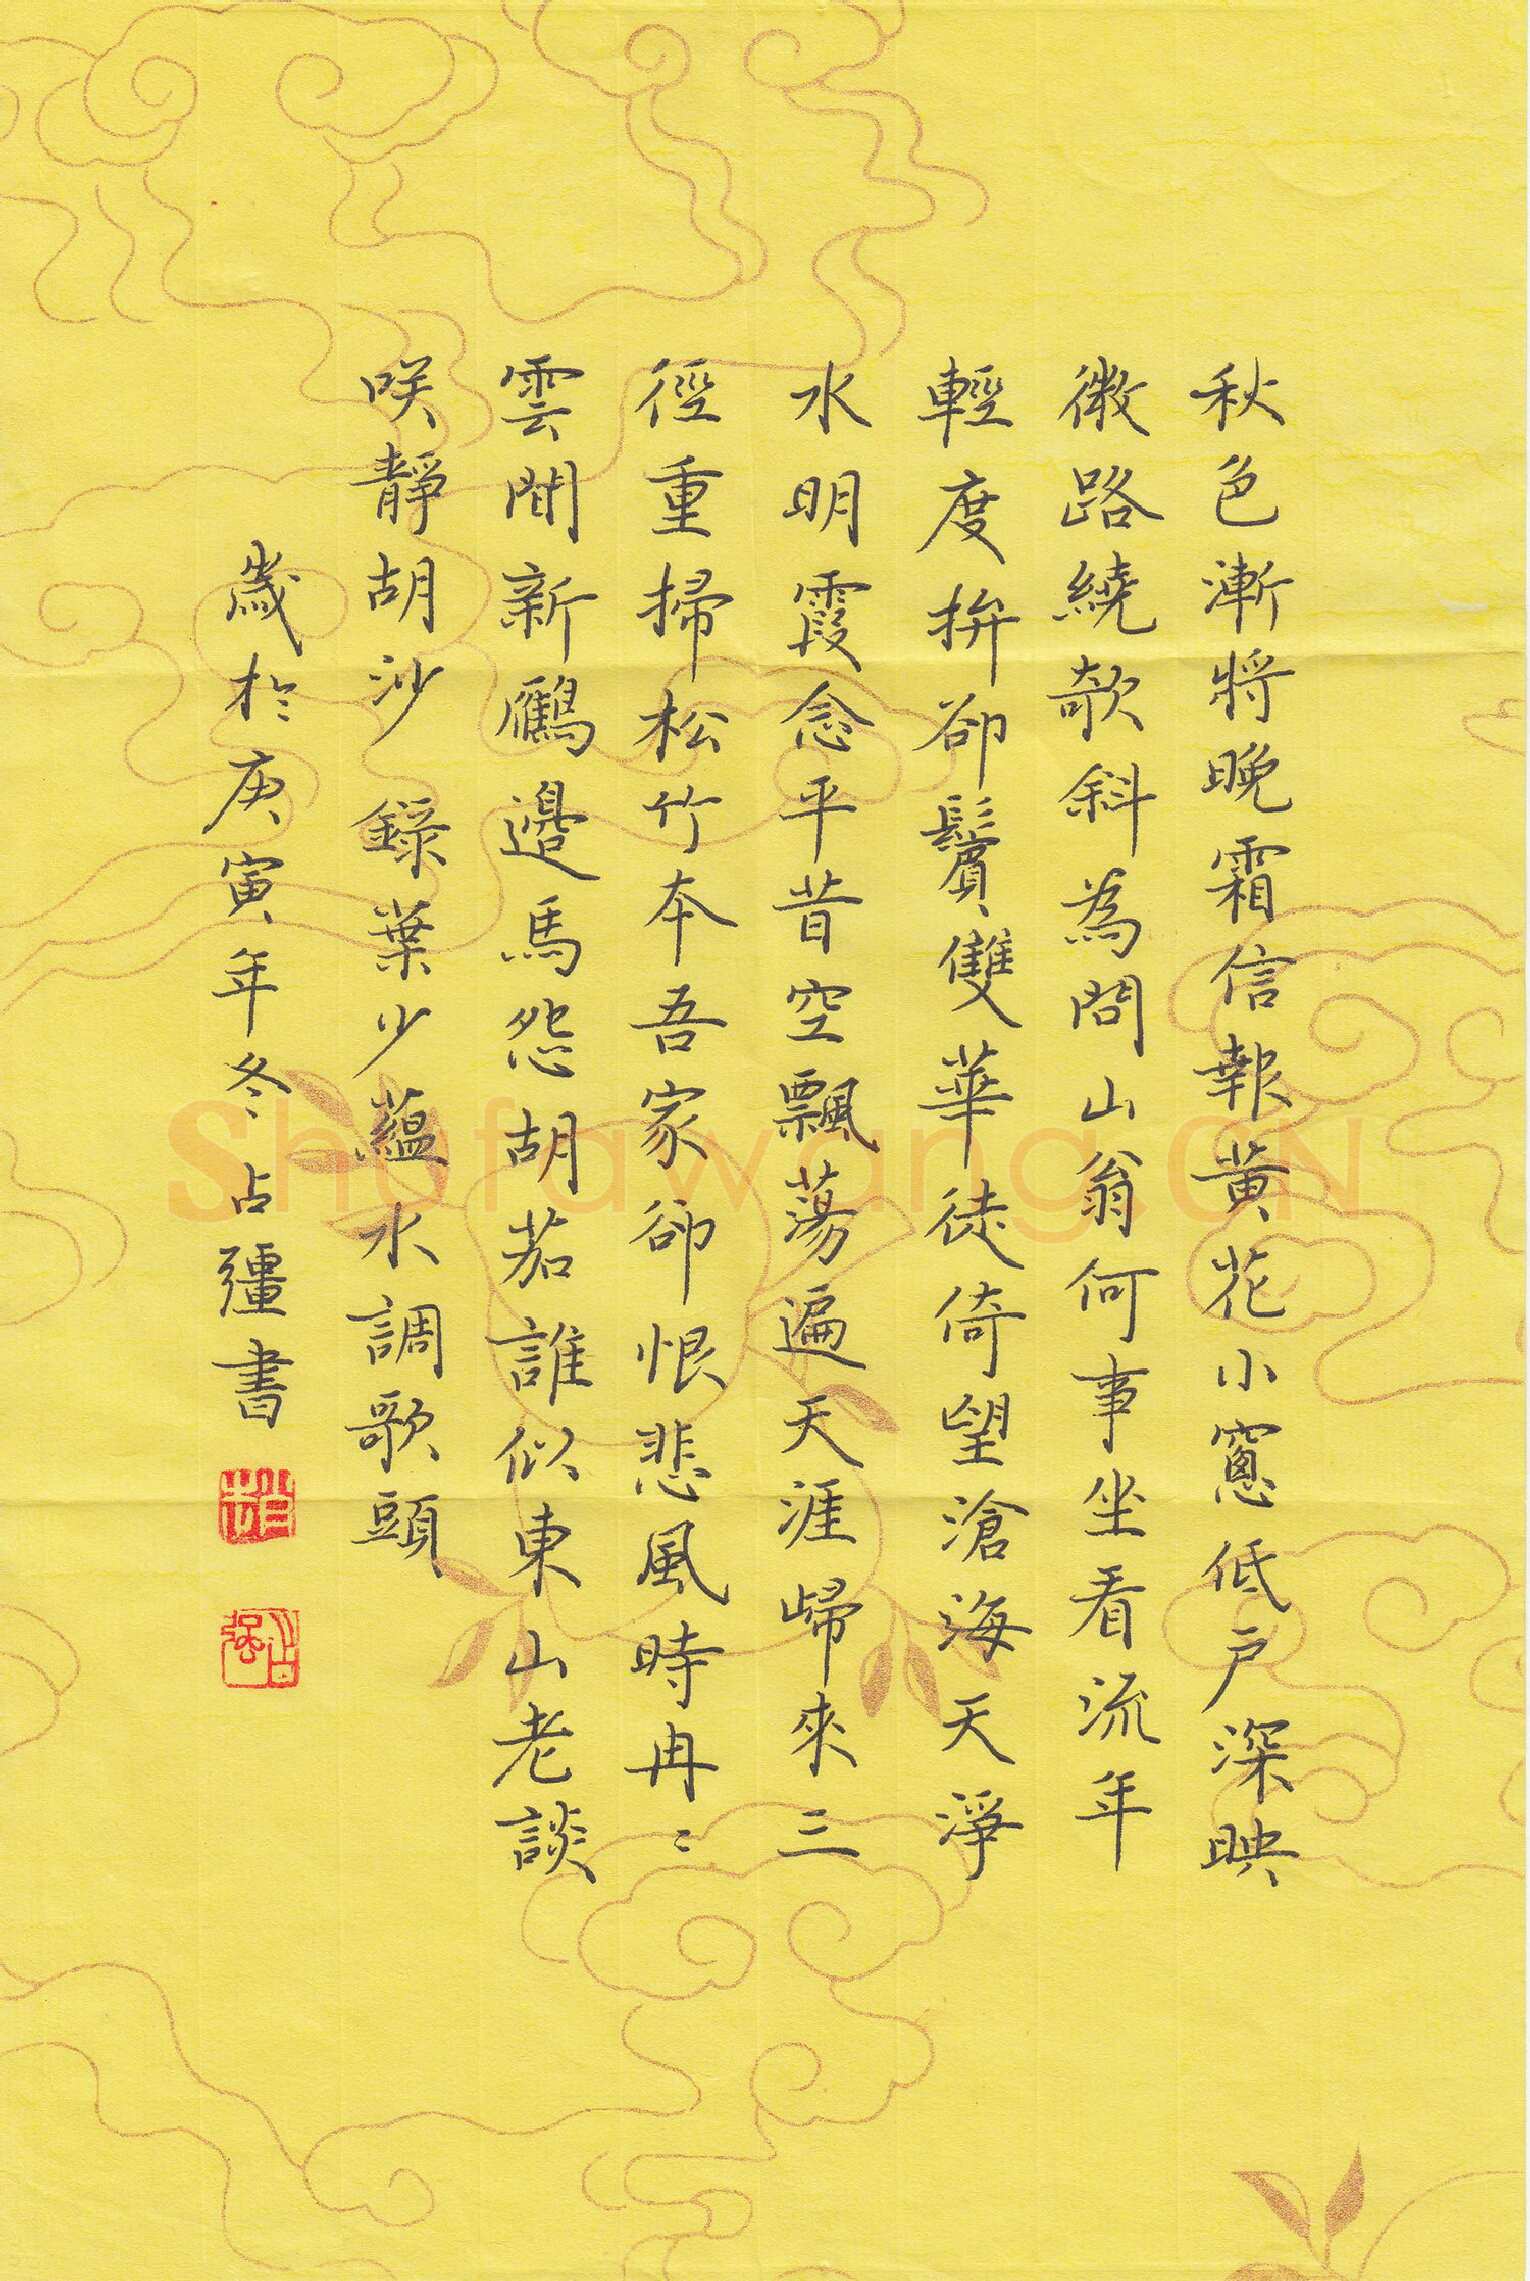 秋色漸將晚霜信報黃花小窻低戶深映
微路繞欹斜為問山翁何事坐看流年
輕度拚卻鬢雙華徒倚望滄海天淨
水明霞念平昔空飄蕩遍天涯歸來三
徑重掃松竹本吾家卻恨悲風時冉〻
雲間新鴈邊馬怨胡茄誰似東山老談
咲靜胡沙 錄葉少蘊水調歌頭
歲於庚寅年冬占彊書
Shufawang.CN